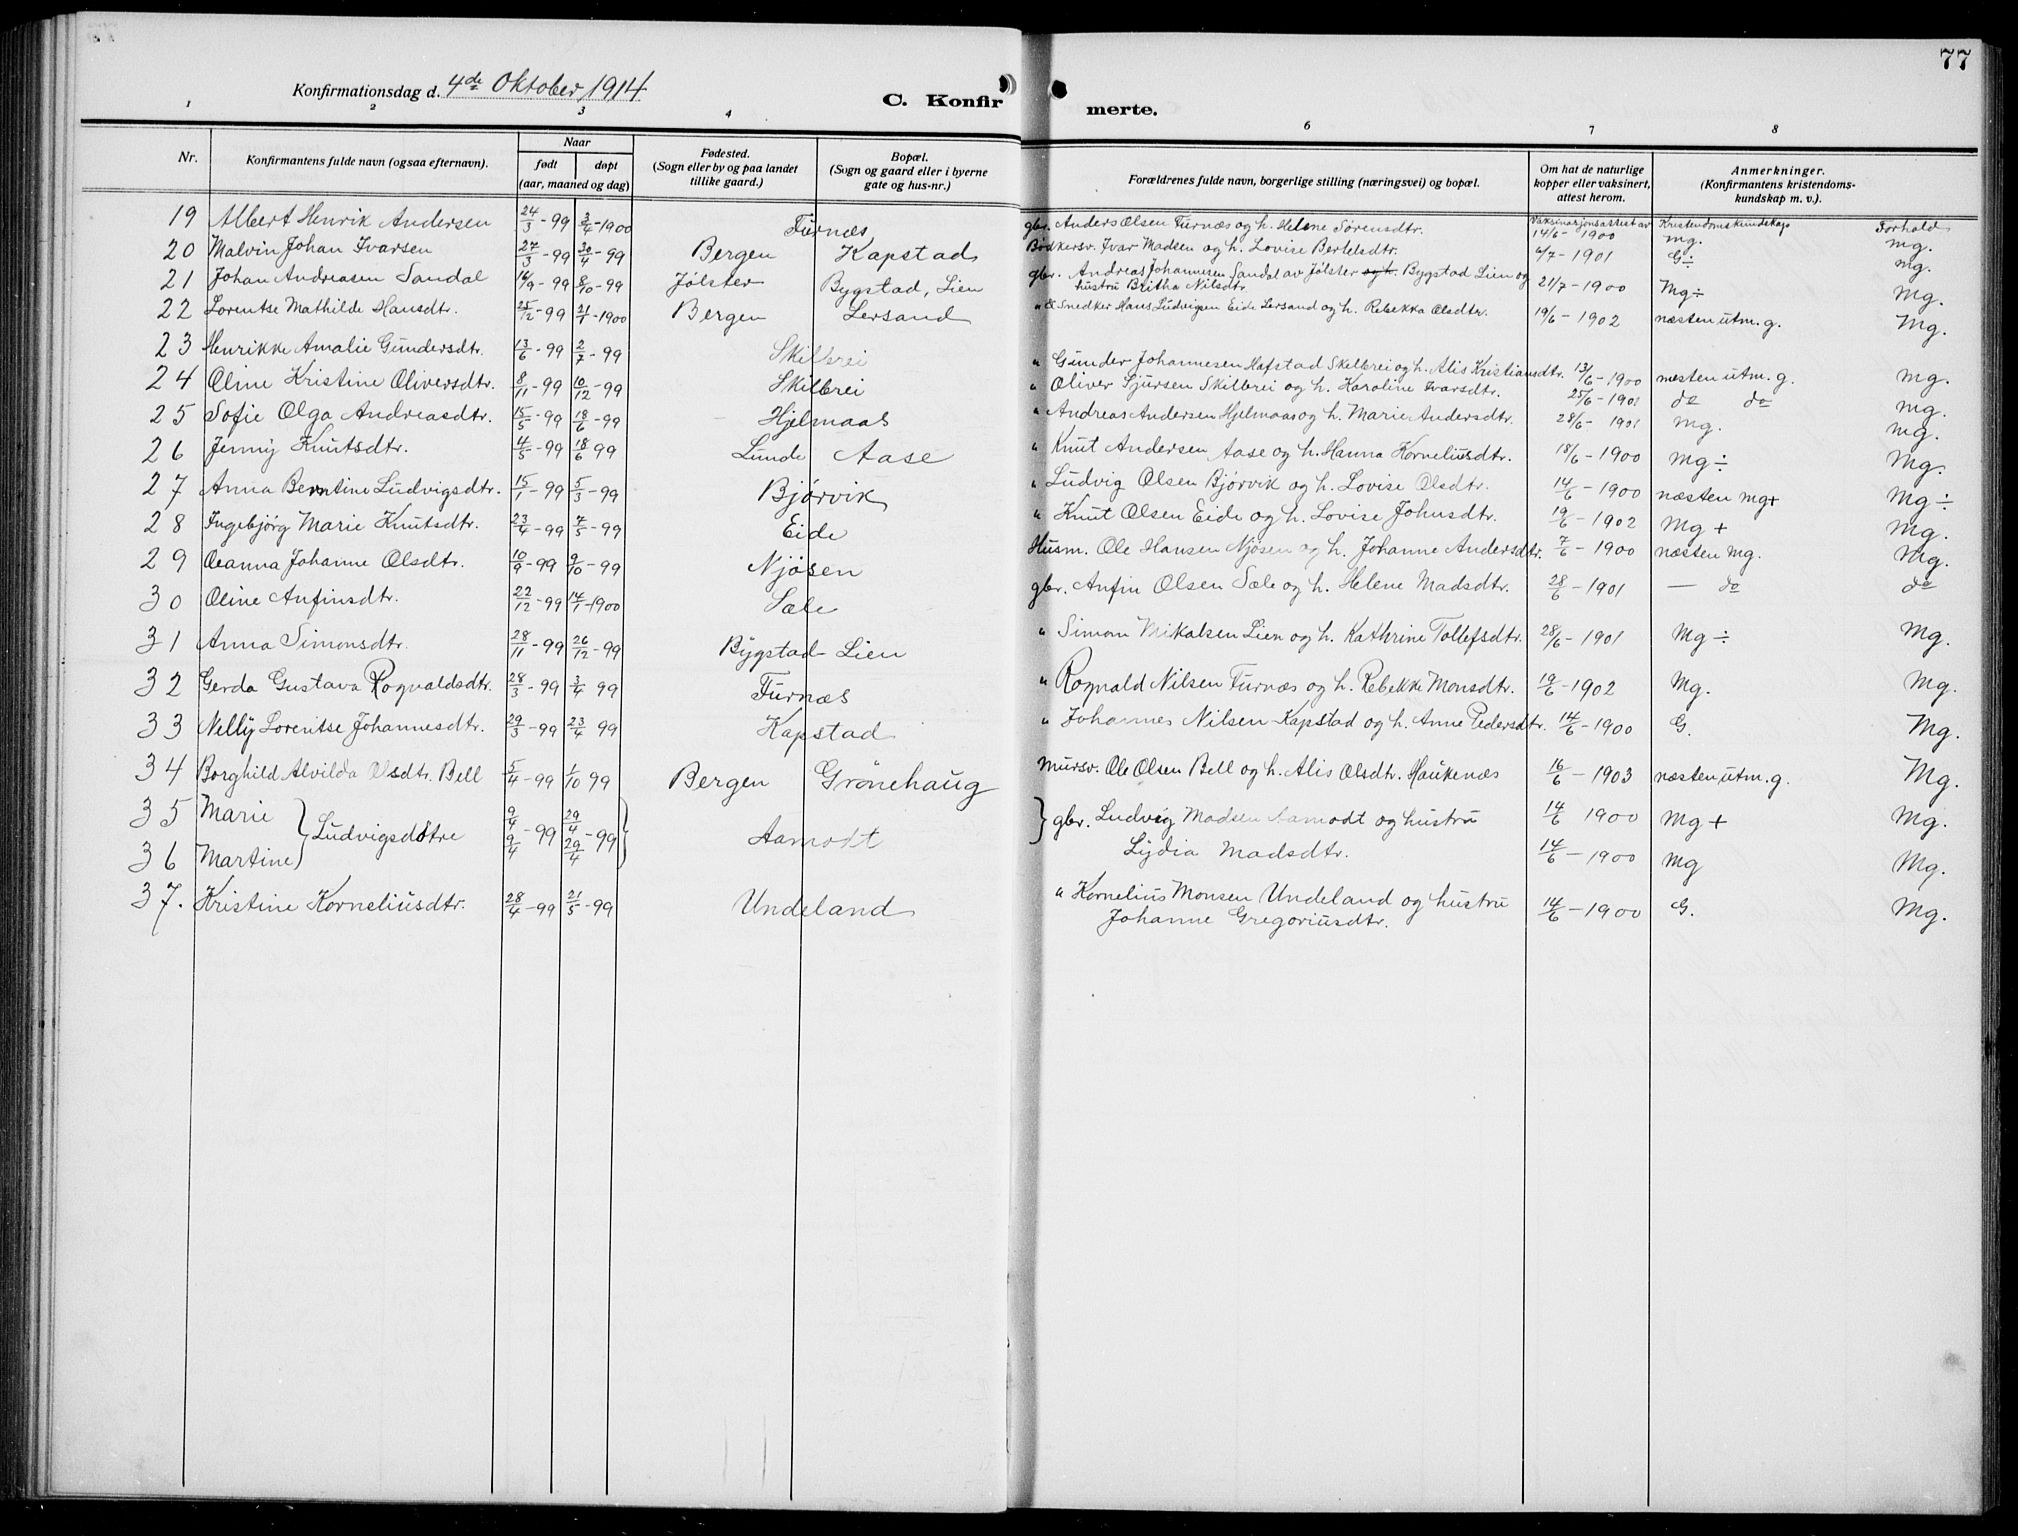 77
Konfirmationsdag d. 4de Oktober 1914
C. Konfirmerte.
1 2 3 4 6 7 8
Nr. Konfirmantens fulde navn (ogsaa efternavn). Naar født døpt (aar, maaned og dag) Fødested. (Sogn eller by og paa landet tillike gaard.) Bopæl. (Sogn og gaard eller i byerne gate og hus-nr.) Forældrenes fulde navn, borgerlige stilling (næringsvei) og bopæl. Om hat de naturlige kopper eller vaksinert, attest herom. Anmerkninger. (Konfirmantens kristendoms-kundskap m. v.).
Vaksinasjonsattest av Kristendomskundskap Forhold
19 Albert Henrik Andersen 24/3-99 3/6-1900 Furnæs gbr. Anders Olsen Furnæs og h. Helene Sørensdtr. 14/6-1900 mg. mg.
20 Malvin Johan Ivarsen 27/3-99 30/4-99 Bergen Kapstad Bødkersv. Ivar Madsen og h. Lovise Bertelsdtr. 6/7-1901 G÷ mg.
21 Johan Andreasen Sandal 16/9-99 8/10-99 Jølster Bygstad, Lien gbr. Andreas Johannesen Sandal av Jølster og h. Bygstad Lien og
hustru Britha Nilsdtr. 21/7-1900 Mg÷ Mg.
22 Lorentse Mathilde Hansdtr. 25/12-99 21/1-1900 Bergen Lersand " & Snedker Hans Ludvigsen Eide Lersand og h. Rebekka Olsdtr. 19/6-1902 næsten utm. g. Mg.
23 Henrikke Amalie Gundersdtr. 13/6-99 2/7-99 Skilbrei " Gunder Johannesen Hafstad Skilbrei og h. Alis Kristiansdtr. 13/6-1900 næsten utm. g. Mg.
24 Oline Kristine Oliversdtr. 8/11-99 10/12-99 Skilbrei " Oliver Sjursen Skilbrei og h. Karoline Ivarsdtr. 25/6-1901 do do mg.
25 Sofie Olga Andreasdtr. 15/5-99 18/6-99 Hjelmaas " Andreas Andersen Hjelmaas og h. Marie Andersdtr. 28/6-1901 Mg. mg.
26 Jenny Knutsdtr. 4/5-99 18/6 99 Lunde Aase " Knut Andersen Aase og h. Hanna Korneliusdtr. 18/6-1900 Mg÷ Mg.
27 Anna Berntine Ludvigsdtr. 15/1-99 5/3-99 Bjørvik " Ludvig Olsen Bjørvik og h. Lovise Olsdtr. 14/6-1900 næsten Mg+ Mg÷
28 Ingebjørg Marie Knutsdtr. 23/4-99 7/5-99 Eide " Knut Olsen Eide og h. Lovise Johnsdtr. 19/6-1902 Mg+ Mg.
29 Oeanna Johanne Olsdtr. 10/9-99 9/10-99 Njøsen Husm. Ole Hansen Njøsen og h. Johanne Andersdtr. 7/6-1900 næsten Mg. Mg.
30 Oline Anfinsdtr. 22/12-99 14/1-1900 Sæle gbr. Anfin Olsen Sæle og h. Helene Madsdtr. 28/6-1901 — do do
31 Anna Simonsdtr. 28/11-99 26/12-99 Bygstad Lien " Simon Mikalsen Lien og h. Kathrine Tollefsdtr. 28/6-1901 Mg÷ Mg.
32 Gerda Gustava Rognaldsdtr. 28/3-99 3/4 99 Furnæs " Rognald Nilsen Furnæs og h. Rebekke Monsdtr. 19/6-1902 Mg. Mg.
33 Nelly Lorentse Johannesdtr. 29/3-99 23/4 99 Kapstad " Johannes Nilsen Kapstad og h. Anne Pedersdtr. 14/6-1900 G. Mg.
34 Borghild Alvilda Olsdtr. Bell 5/4-99 1/10 99 Bergen Grönehaug Mursv. Ole Olsen Bell og h. Alis Olsdtr. Haukenæs 16/6-1903 næsten utm. g. Mg.
35 Marie } Ludvigsdøtre 9/4-99 29/4-99 } Aamodt } gbr. Ludvig Madsen Aamodt og hustru 14/6 1900 Mg+ Mg.
36 Martine 9/4 29/4 Lydia Madsdtr. 14/6-1900 Mg Mg.
37. Kristine Korneliusdtr. 28/4-99 21/5-99 Undeland " Kornelius Monsen Undeland og hustru
Johanne Gregoriusdtr. 14/6-1900 G. Mg.